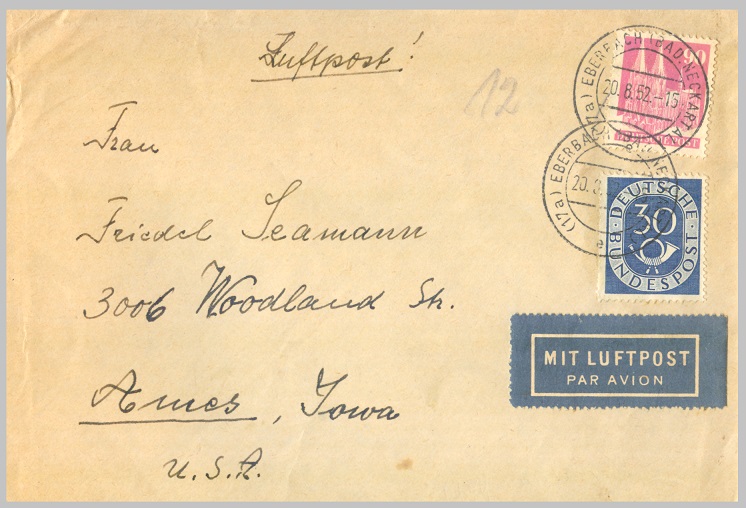 Luftpost!
12
Frau
Friedel Seamann
3006 Woodland Str.
Ames, Iowa
U.S.A.
90
EBERBACH (BAD. NECKARTAL
20.8.52.-15
(17a) EBERBACH
20.
(17a)
DEUTSCHE
30
BUNDESPOST
MIT LUFTPOST
PAR AVION